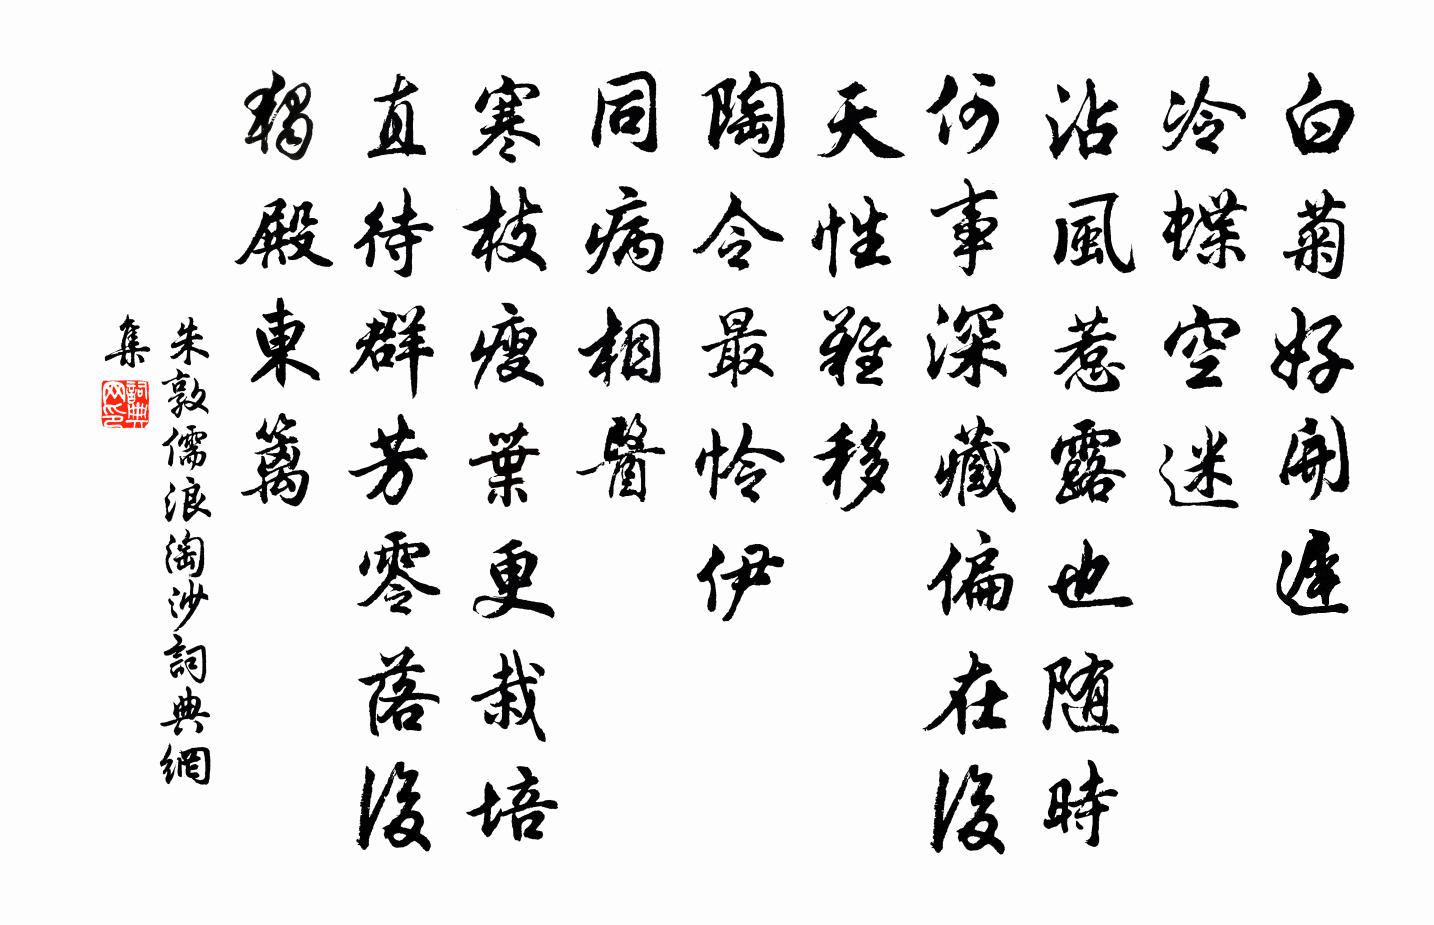 白菊好開遲
冷蝶空迷
沾風惹露也随時
何事深藏偏在後
天性難移
陶令最怜伊
同病相醫
寒枝瘦葉更栽培
直待群芳零落後
獨殿東籬
朱敦儒浪淘沙詞典網
集
詞典
网印